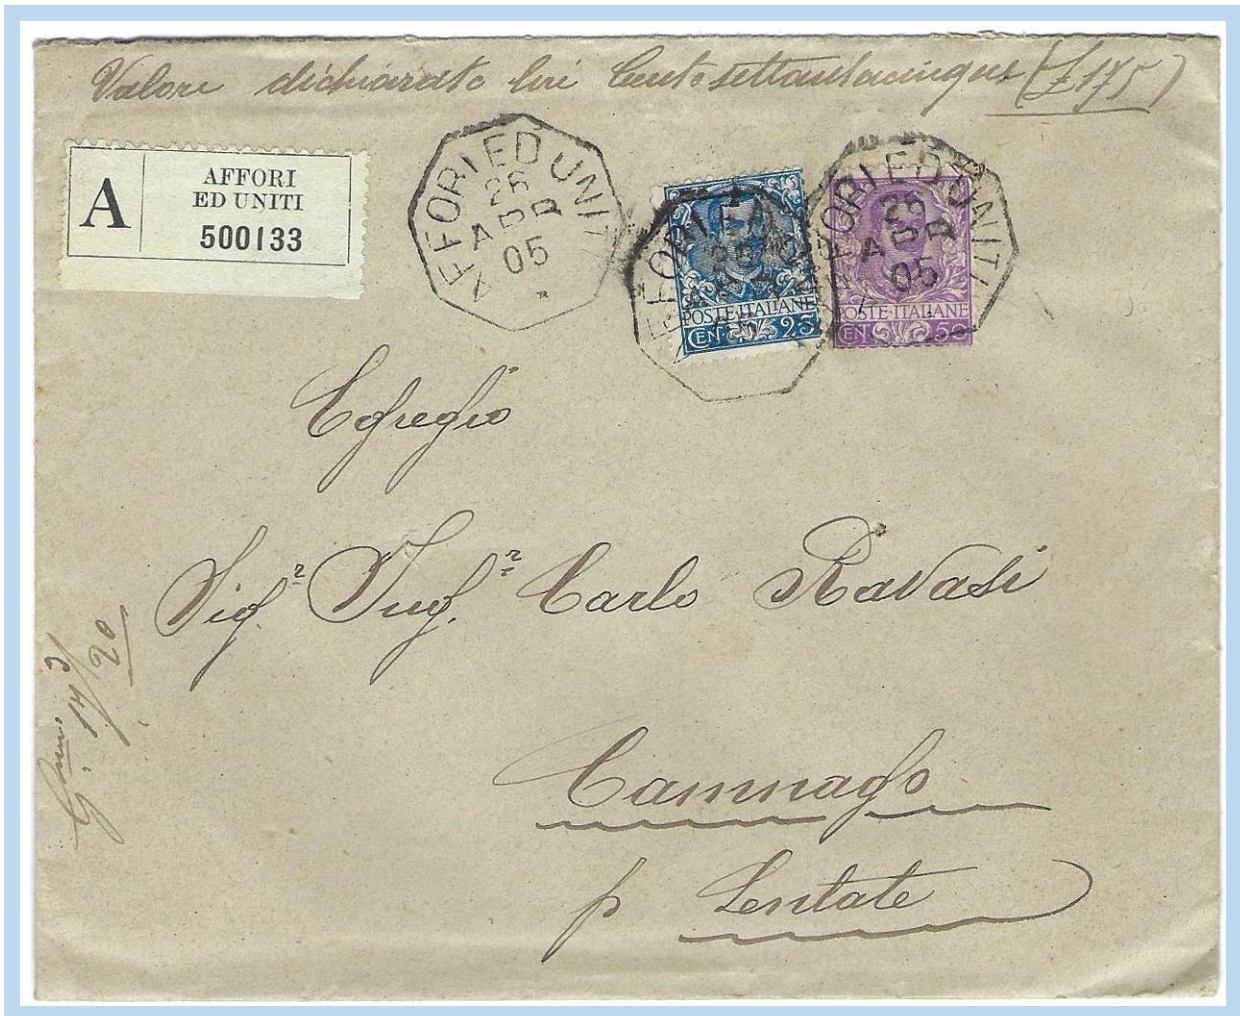 Valore dichiarato lire Centosettantacinque (£ 175)
A
AFFORI
ED UNITI
500133
AFFORI ED UNITI
26
APR
05
AFFORI ED UNITI
26
APR
05
POSTE·ITALIANE
CEN. 25
AFFORI ED UNITI
26
APR
05
POSTE·ITALIANE
CEN. 50
Egregio
Sigr. Ingr. Carlo Ravasi
Camnago
p Lentate
17 3/20